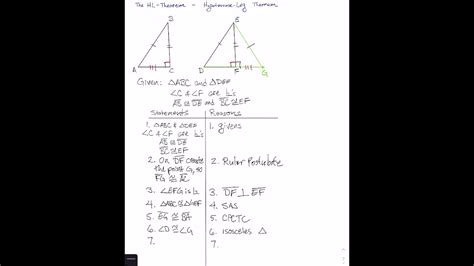 The HL-Theorem - Hypotenuse-Leg Theorem
B
E
A
C
D
F
G
Given: △ABC and △DEF
∠C & ∠F are L's
AB ≅ DE and BC ≅ EF
Statements
Reasons
1. △ABC & △DEF
∠C & ∠F are L's
AB ≅ DE
BC ≅ EF
1. givens
2. On DF create
the point G, so
FG ≅ AC
2. Ruler Postulate
3. ∠EFG is L
3. DF ⊥ EF
4. △ABC ≅ △GEF
4. SAS
5. EG ≅ BA
5. CPCTC
6. ∠D ≅ ∠G
6. isosceles △
7.
7.